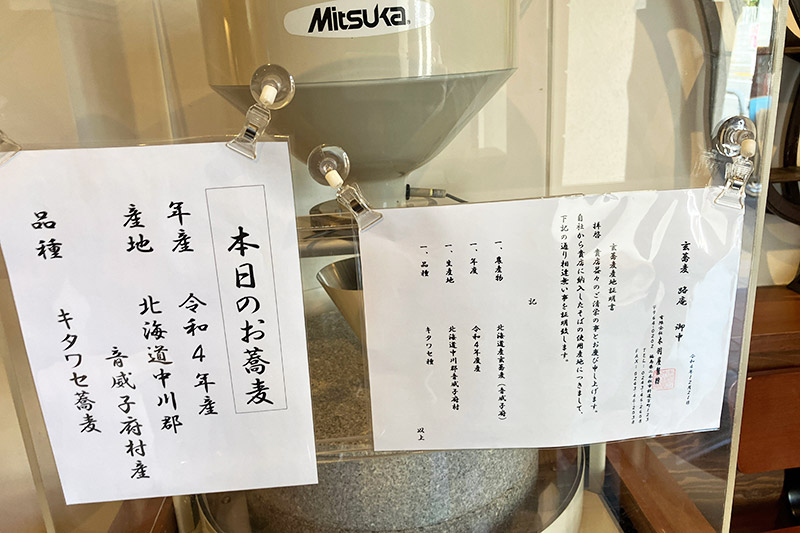 Mitsuka
本日のお蕎麦
年産 令和4年産
産地 北海道中川郡
音威子府村産
品種 キタワセ蕎麦
玄蕎麦 路庵 御中
玄蕎麦産地証明書
拝啓 貴店益々のご清栄の事とお慶び申し上げます。
自社から貴店に納入したそばの使用産地につきまして、
下記の通り相違無い事を証明致します。
記
一、農産物 北海道産玄蕎麦(音威子府)
一、年度 令和4年度産
一、生産地 北海道中川郡音威子府村
一、品種 キタワセ種
以上